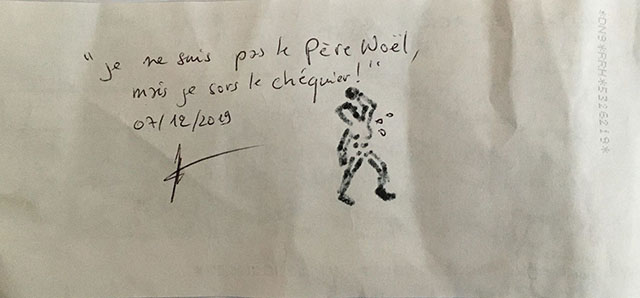 "je ne suis pas le Père Noël,
mais je sors le chéquier!"
07/12/2019